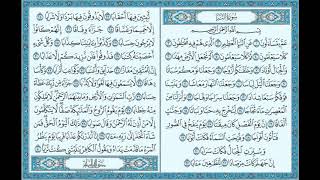 سُورَةُ النَّبَإِ
بِسْمِ اللَّهِ الرَّحْمَٰنِ الرَّحِيمِ
عَمَّ يَتَسَاءَلُونَ ١ عَنِ النَّبَإِ الْعَظِيمِ ٢ الَّذِي هُمْ فِيهِ مُخْتَلِفُونَ ٣
كَلَّا سَيَعْلَمُونَ ٤ ثُمَّ كَلَّا سَيَعْلَمُونَ ٥ أَلَمْ نَجْعَلِ الْأَرْضَ مِهَادًا ٦
وَالْجِبَالَ أَوْتَادًا ٧ وَخَلَقْنَاكُمْ أَزْوَاجًا ٨ وَجَعَلْنَا نَوْمَكُمْ
سُبَاتًا ٩ وَجَعَلْنَا اللَّيْلَ لِبَاسًا ١٠ وَجَعَلْنَا النَّهَارَ مَعَاشًا ١١
وَبَنَيْنَا فَوْقَكُمْ سَبْعًا شِدَادًا ١٢ وَجَعَلْنَا سِرَاجًا وَهَّاجًا ١٣
وَأَنزَلْنَا مِنَ الْمُعْصِرَاتِ مَاءً ثَجَّاجًا ١٤ لِّنُخْرِجَ بِهِ حَبًّا وَنَبَاتًا ١٥
وَجَنَّاتٍ أَلْفَافًا ١٦ إِنَّ يَوْمَ الْفَصْلِ كَانَ مِيقَاتًا ١٧ يَوْمَ يُنفَخُ فِي الصُّورِ
فَتَأْتُونَ أَفْوَاجًا ١٨ وَفُتِحَتِ السَّمَاءُ فَكَانَتْ أَبْوَابًا ١٩
وَسُيِّرَتِ الْجِبَالُ فَكَانَتْ سَرَابًا ٢٠
إِنَّ جَهَنَّمَ كَانَتْ مِرْصَادًا ٢١ لِّلطَّاغِينَ مَآبًا ٢٢
لَّابِثِينَ فِيهَا أَحْقَابًا ٢٣ لَّا يَذُوقُونَ فِيهَا بَرْدًا وَلَا شَرَابًا ٢٤
إِلَّا حَمِيمًا وَغَسَّاقًا ٢٥ جَزَاءً وِفَاقًا ٢٦ إِنَّهُمْ كَانُوا
لَا يَرْجُونَ حِسَابًا ٢٧ وَكَذَّبُوا بِآيَاتِنَا كِذَّابًا ٢٨ وَكُلَّ شَيْءٍ
أَحْصَيْنَاهُ كِتَابًا ٢٩ فَذُوقُوا فَلَن نَّزِيدَكُمْ إِلَّا عَذَابًا ٣٠
إِنَّ لِلْمُتَّقِينَ مَفَازًا ٣١ حَدَائِقَ وَأَعْنَابًا ٣٢ وَكَوَاعِبَ أَتْرَابًا ٣٣
وَكَأْسًا دِهَاقًا ٣٤ لَّا يَسْمَعُونَ فِيهَا لَغْوًا وَلَا كِذَّابًا ٣٥ جَزَاءً مِّن رَّبِّكَ عَطَاءً
حِسَابًا ٣٦ رَّبِّ السَّمَاوَاتِ وَالْأَرْضِ وَمَا بَيْنَهُمَا الرَّحْمَٰنِ لَا يَمْلِكُونَ مِنْهُ
خِطَابًا ٣٧ يَوْمَ يَقُومُ الرُّوحُ وَالْمَلَائِكَةُ صَفًّا لَّا يَتَكَلَّمُونَ
إِلَّا مَنْ أَذِنَ لَهُ الرَّحْمَٰنُ وَقَالَ صَوَابًا ٣٨ ذَٰلِكَ الْيَوْمُ الْحَقُّ فَمَن
شَاءَ اتَّخَذَ إِلَىٰ رَبِّهِ مَآبًا ٣٩ إِنَّا أَنذَرْنَاكُمْ عَذَابًا قَرِيبًا يَوْمَ يَنظُرُ
الْمَرْءُ مَا قَدَّمَتْ يَدَاهُ وَيَقُولُ الْكَافِرُ يَا لَيْتَنِي كُنتُ تُرَابًا ٤٠